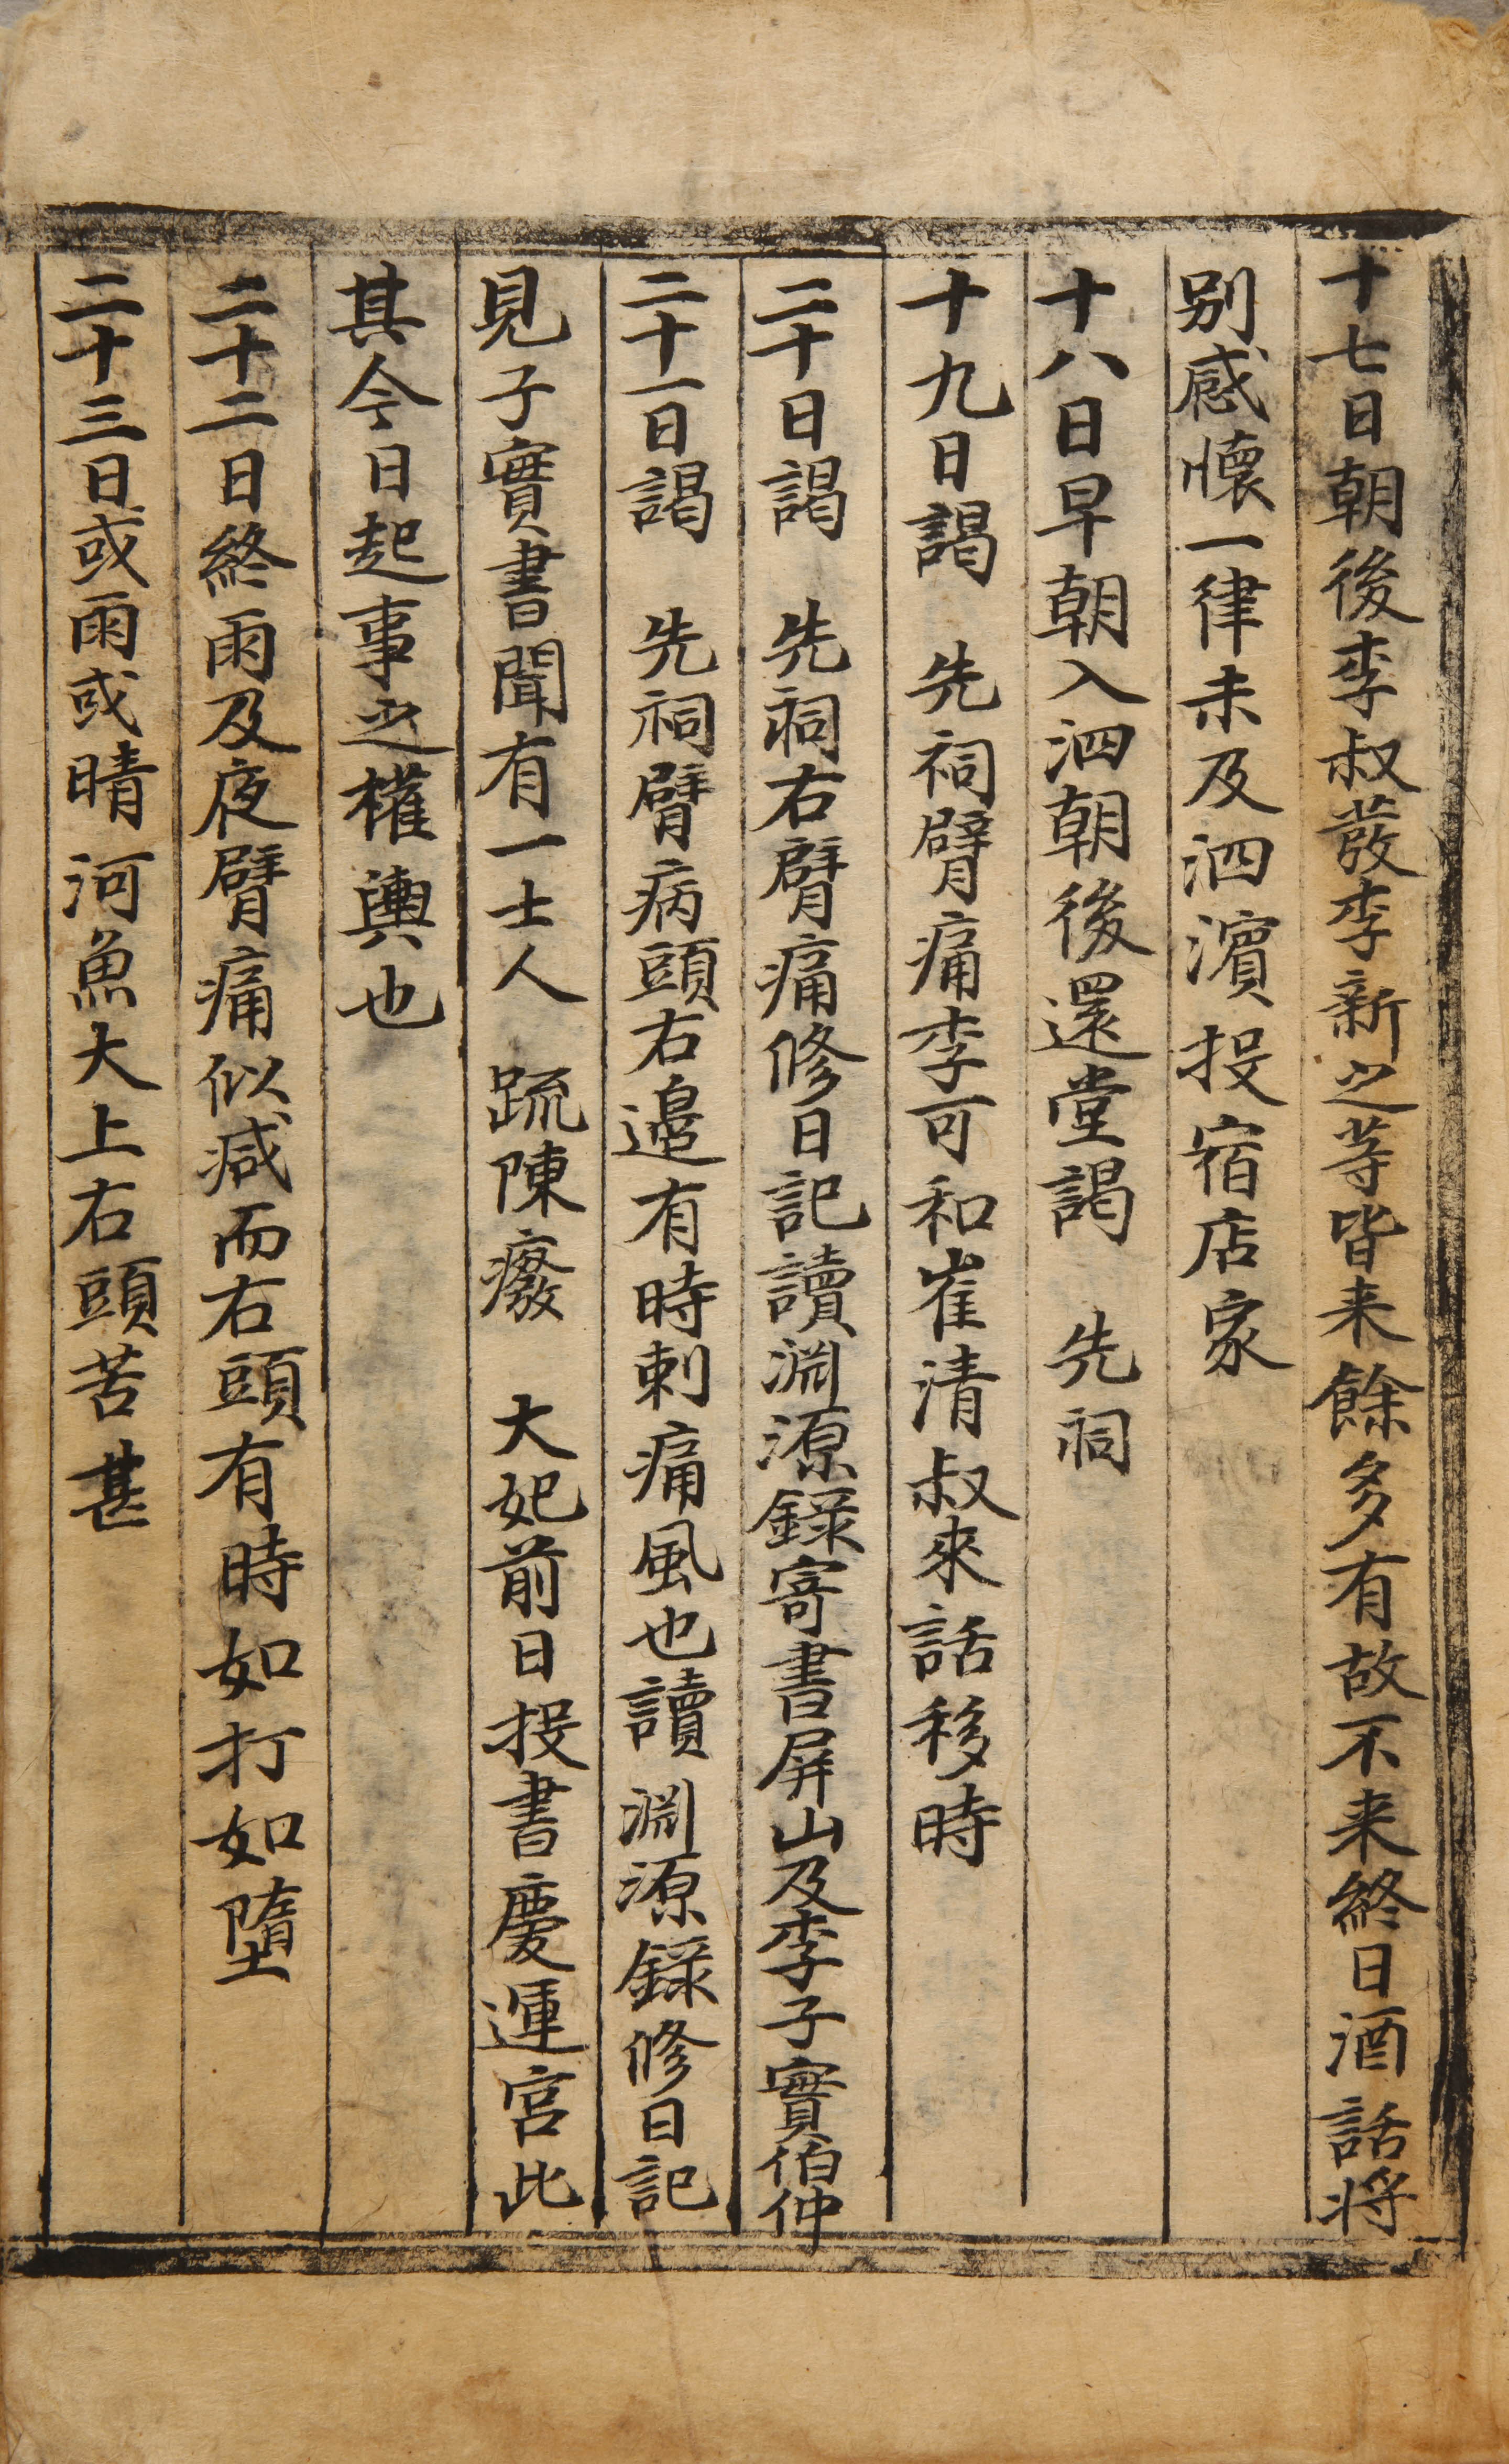 十七日朝後李叔發李新之等皆来餘多有故不来終日酒話将
别感懷一律未及泗濱投宿店家
十八日早朝入泗朝後還堂謁　先祠
十九日謁　先祠臂痛李可和崔清叔來話移時
二十日謁　先祠右臂痛修日記讀淵源錄寄書屏山及李子實伯仲
二十一日謁　先祠臂病頭右邉有時刺痛風也讀淵源錄修日記
見子實書聞有一士人　疏陳癈　大妃前日投書慶運宮此
其今日起事之權輿也
二十二日終雨及夜臂痛似减而右頭有時如打如墮
二十三日或雨或晴河魚大上右頭苦甚